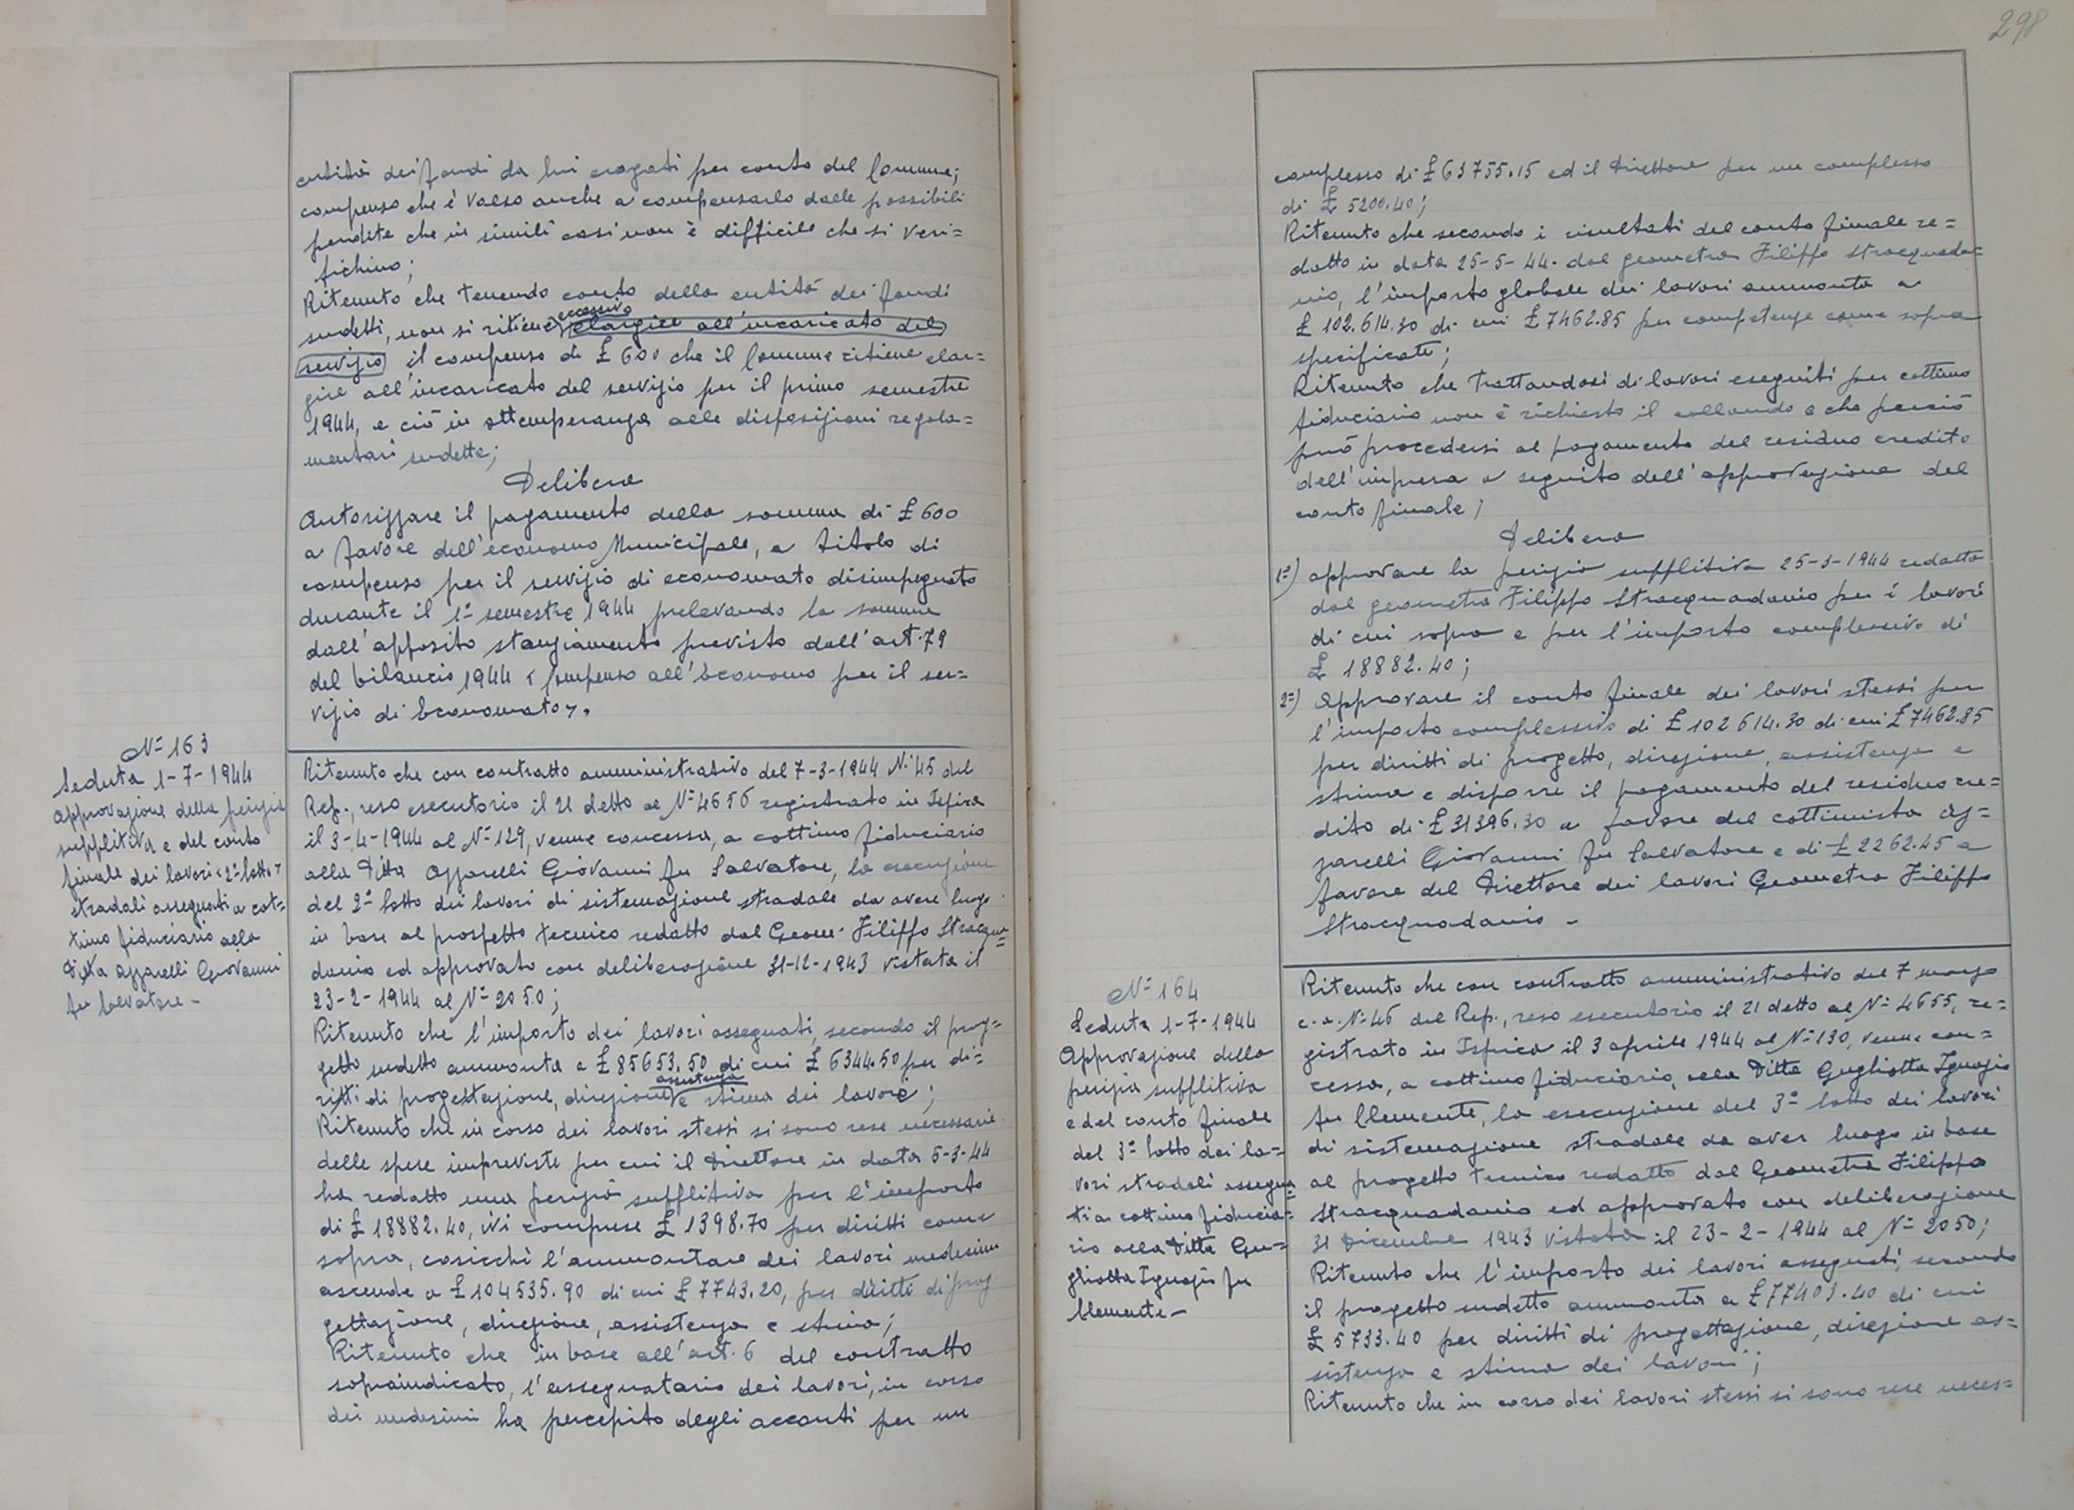 entità dei fondi da lui erogati per conto del Comune;
compenso che è valso anche a compensarlo dalle possibili
perdite che in simili casi non è difficile che si veri=
fichino;
Ritenuto che tenendo conto della entità dei fondi
sudetti, non si ritiene eccessivo elargire all'incaricato del
servizio il compenso di £ 600 che il Comune ritiene elar=
gire all'incaricato del servizio per il primo semestre
1944, e ciò in ottemperanza alle disposizioni regola=
mentari sudette;
Delibera
Autorizzare il pagamento della somma di £ 600
a favore dell'economo Municipale, a titolo di
compenso per il servizio di economato disimpegnato
durante il 1° semestre 1944 prelevando la somma
dall'apposito stanziamento previsto dall'art. 79
del bilancio 1944 < Compenso all'Economo per il ser=
vizio di Economato>.
N= 163
Seduta 1-7-1944
Approvazione della perizia
supplitiva e del conto
finale dei lavori <2° lotto>
stradali assegnati a cot=
timo fiduciario alla
Ditta Azzarelli Giovanni
fu Salvatore -
Ritenuto che con contratto amministrativo del 7-3-1944 N. 45 del
Rep., reso esecutorio il 21 detto al N= 4656 registrato in Ispica
il 3-4-1944 al N= 129, venne concessa, a cottimo fiduciario
alla Ditta Azzarelli Giovanni fu Salvatore, la esecuzione
del 2° lotto dei lavori di sistemazione stradale da avere luogo
in base al prospetto tecnico redatto dal Geom. Filippo Stracqua=
danio ed approvato con deliberazione 31-12-1943 vistata il
23-2-1944 al N= 2050;
Ritenuto che l'importo dei lavori assegnati, secondo il prog=
getto sudetto ammonta a £ 85653.50 di cui £ 6344.50 per di=
ritti di progettazione, direzione assistenza e stima dei lavori;
Ritenuto che in corso dei lavori stessi si sono rese necessarie
delle spese impreviste per cui il Direttore in data 5-3-44
ha redatto una perizia supplitiva per l'importo
di £ 18882.40, ivi comprese £ 1398.70 per diritti come
sopra, cosicchè l'ammontare dei lavori medesimi
ascende a £ 104535.90 di cui £ 7743.20, per diritti di prog
gettazione, direzione, assistenza e stima;
Ritenuto che in base all'art. 6 del contratto
sopraindicato, l'assegnatario dei lavori, in corso
dei medesimi ha percepito degli acconti per un
298
complesso di £ 63755.15 ed il Direttore per un complesso
di £ 5200.40;
Ritenuto che secondo i risultati del conto finale re=
datto in data 25-5-44. dal geometra Filippo Stracquada=
nio, l'importo globale dei lavori ammonta a
£ 102.614.30 di cui £ 7462.85 per competenze come sopra
specificate;
Ritenuto che trattandosi di lavori eseguiti per cottimo
fiduciario non è richiesto il collaudo e che perciò
può procedersi al pagamento del residuo credito
dell'impresa a seguito dell'approvazione del
conto finale;
Delibera
1=) approvare la perizia supplitiva 25-3-1944 redatta
dal geometra Filippo Stracquadanio per i lavori
di cui sopra e per l'importo complessivo di
£ 18882.40;
2=) Approvare il conto finale dei lavori stessi per
l'importo complessivo di £ 102614.30 di cui £ 7462.85
per diritti di progetto, direzione, assistenza e
stima e disporre il pagamento del residuo cre=
dito di £ 31396.30 a favore del cottimista Az=
zarelli Giovanni fu Salvatore e di £ 2262.45 a
favore del Direttore dei lavori Geometra Filippo
Stracquadanio -
N= 164
Seduta 1-7-1944
Approvazione della
perizia supplitiva
e del conto finale
del 3° lotto dei la=
vori stradali assegna=
ti a cottimo fiducia=
rio alla Ditta Gu=
gliotta Ignazio fu
Clemente -
Ritenuto che con contratto amministrativo del 7 marzo
c.a. N= 46 del Rep., reso esecutorio il 21 detto al N= 4655, re=
gistrato in Ispica il 3 aprile 1944 al N= 130, venne con=
cessa, a cottimo fiduciario, alla Ditta Gugliotta Ignazio
fu Clemente, la esecuzione del 3° lotto dei lavori
di sistemazione stradale da aver luogo in base
al progetto tecnico redatto dal Geometra Filippo
Stracquadanio ed approvato con deliberazione
31 Dicembre 1943 vistata il 23-2-1944 al N= 2050;
Ritenuto che l'importo dei lavori assegnati, secondo
il progetto sudetto ammonta a £ 77401.40 di cui
£ 5733.40 per diritti di progettazione, direzione as=
sistenza e stima dei lavori;
Ritenuto che in corso dei lavori stessi si sono rese neces=